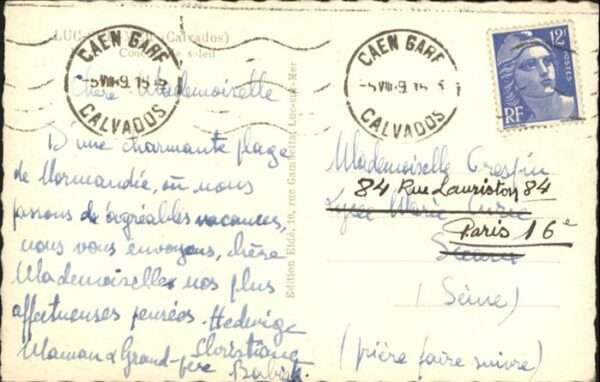 LUC-SUR-MER (Calvados)
Coucher de soleil
CAEN GARE
CALVADOS
CAEN GARE
CALVADOS
12F
POSTES
RF
Chère Mademoiselle
D'une charmante plage
de Normandie, où nous
passons de agréables vacances,
nous vous envoyons, chère
Mademoiselle nos plus
affectueuses pensées. Hedwige
Christiane
Maman & Grand-père
Edition Eldé, 10, rue Gambetta, Luc-sur-Mer
Mademoiselle Crespin
84 Rue Lauriston 84
Lycée Marie Curie
Paris 16e
Sceaux
(Seine)
(prière faire suivre)